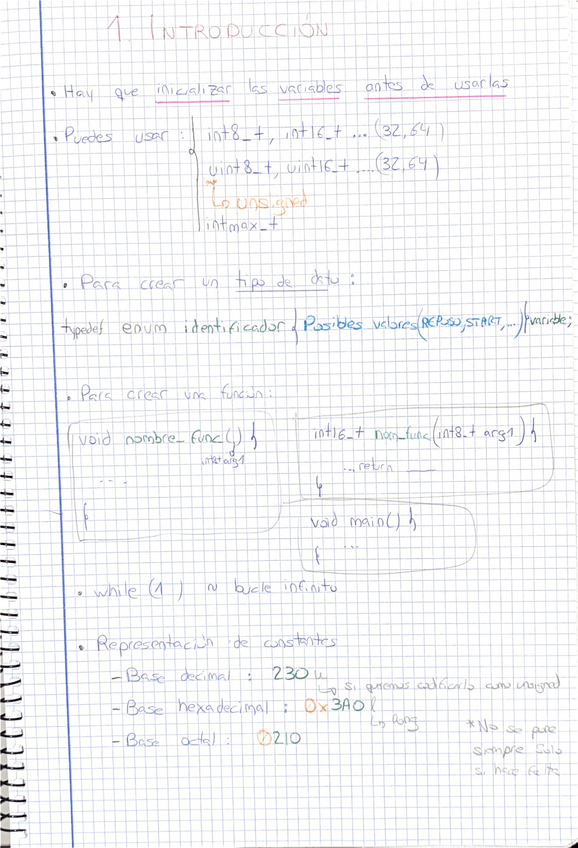 1. INTRODUCCIÓN
• Hay que inicializar las variables antes de usarlas
• Puedes usar : { int8_t, int16_t ... (32,64)
uint8_t, uint16_t ....(32,64)
↳ unsigned
intmax_t
• Para crear un tipo de dato :
typedef enum identificador { Posibles valores (REPOSO, START, ...) } variable;
• Para crear una función:
void nombre_func( ) {
int8_t arg1
...
}
int16_t nom_func(int8_t arg1) {
... return ____
}
void main() {
...
}
• while (1) ~ bucle infinito
• Representación de constantes
- Base decimal : 230 u
↳ si queremos codificarlo como unsigned
- Base hexadecimal : 0x3A0 l
↳ long
- Base octal : 0210
*No se pone
siempre solo
si hace falta